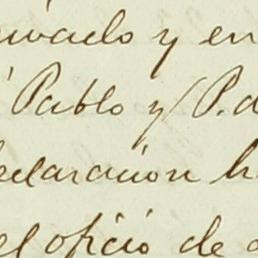 y en
Pablo y P. d
eclaración h
el oficio de